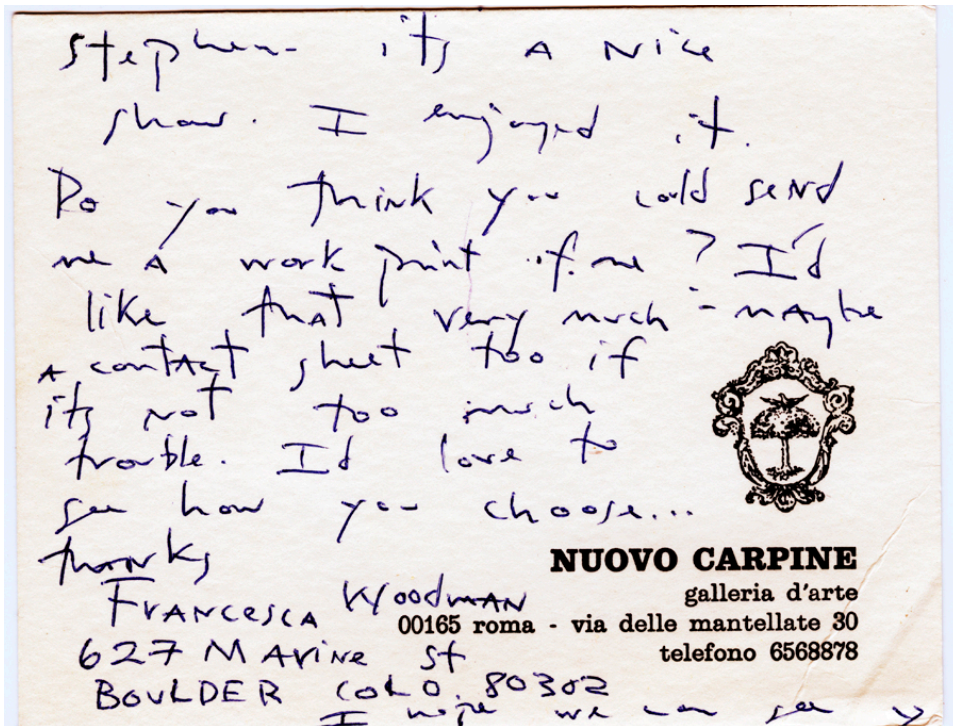 Stephen - its A Nice
show. I enjoyed it.
Do you think you could send
me A work print of me? I'd
like that very much - mAybe
A contAct sheet too if
its Not too much
trouble. Id love to
see how you choose...
thanks
FRANCESCA WOODMAN
627 MARINE St
BOULDER COLO. 80302
I hope we can see
NUOVO CARPINE
galleria d'arte
00165 roma - via delle mantellate 30
telefono 6568878